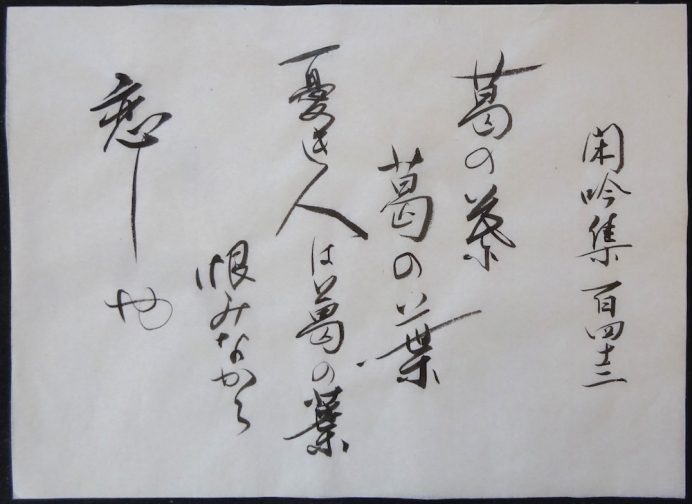 閑吟集 百四十二
葛の葉
葛の葉
憂き人は葛の葉
恨みなから
恋し也